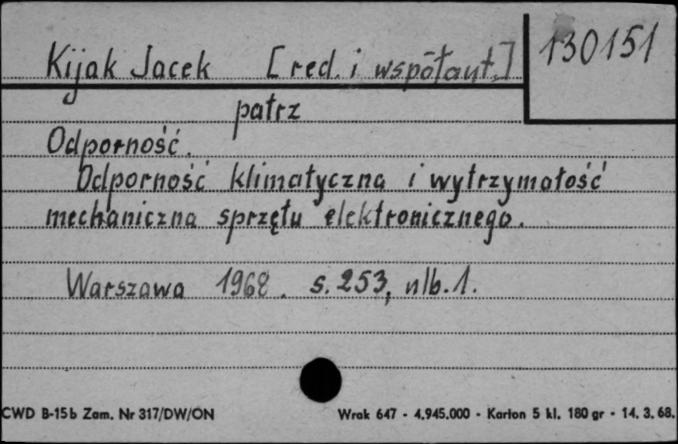 Kijak Jacek [red. i współaut.] 130151
patrz
Odporność.
Odporność klimatyczna i wytrzymałość
mechaniczna sprzętu elektronicznego.
Warszawa 1968. s. 253, nlb. 1.
CWD B-15b Zam. Nr 317/DW/ON Wrak 647 - 4.945.000 - Karton 5 kl. 180 gr - 14. 3. 68.